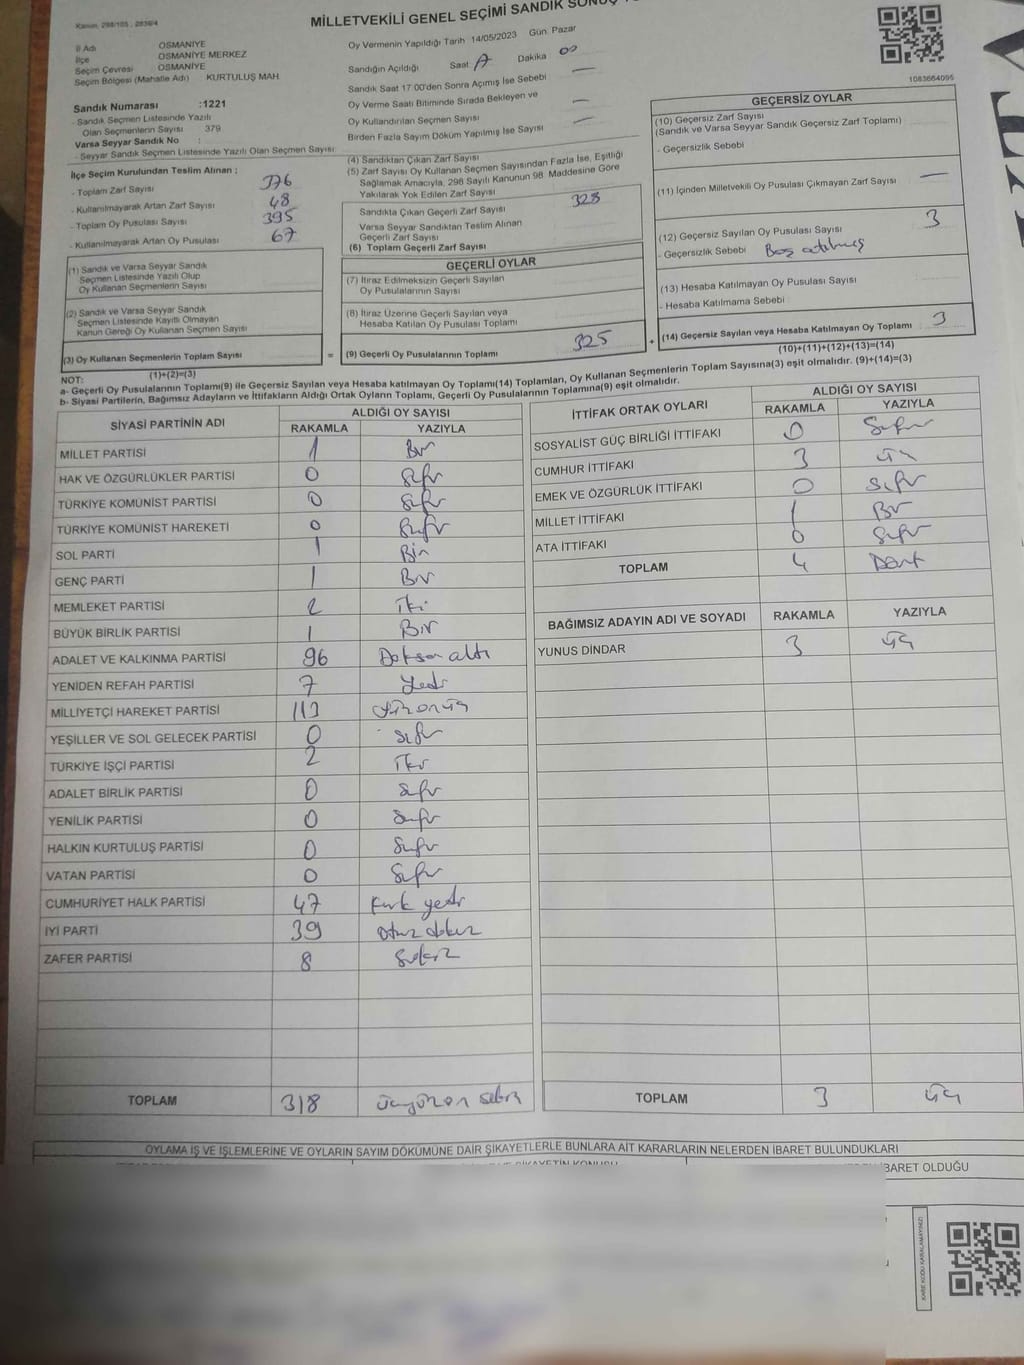 Kanun, 298/105 , 2839/4
MİLLETVEKİLİ GENEL SEÇİMİ SANDIK SONUÇ
İl Adı OSMANİYE
İlçe OSMANİYE MERKEZ
Seçim Çevresi OSMANİYE
Seçim Bölgesi (Mahalle Adı) KURTULUŞ MAH
Sandık Numarası :1221
- Sandık Seçmen Listesinde Yazılı
Olan Seçmenlerin Sayısı 379
Varsa Seyyar Sandık No :
- Seyyar Sandık Seçmen Listesinde Yazılı Olan Seçmen Sayısı:
İlçe Seçim Kurulundan Teslim Alınan ;
- Toplam Zarf Sayısı 376
- Kullanılmayarak Artan Zarf Sayısı 48
- Toplam Oy Pusulası Sayısı 395
- Kullanılmayarak Artan Oy Pusulası 67
(1) Sandık ve Varsa Seyyar Sandık
Seçmen Listesinde Yazılı Olup
Oy Kullanan Seçmenlerin Sayısı
(2) Sandık ve Varsa Seyyar Sandık
Seçmen Listesinde Kayıtlı Olmayan
Kanun Gereği Oy Kullanan Seçmen Sayısı
(3) Oy Kullanan Seçmenlerin Toplam Sayısı
(1)+(2)=(3)
Oy Vermenin Yapıldığı Tarih 14/05/2023 Gün. Pazar
Sandığın Açıldığı Saat Dakika 00
Sandık Saat 17.00'den Sonra Açılmış İse Sebebi —
Oy Verme Saati Bitiminde Sırada Bekleyen ve
Oy Kullandırılan Seçmen Sayısı —
Birden Fazla Sayım Döküm Yapılmış İse Sayısı —
(4) Sandıktan Çıkan Zarf Sayısı
(5) Zarf Sayısı Oy Kullanan Seçmen Sayısından Fazla İse, Eşitliği
Sağlamak Amacıyla, 298 Sayılı Kanunun 98. Maddesine Göre
Yakılarak Yok Edilen Zarf Sayısı
Sandıkta Çıkan Geçerli Zarf Sayısı 328
Varsa Seyyar Sandıktan Teslim Alınan
Geçerli Zarf Sayısı
(6) Toplam Geçerli Zarf Sayısı
GEÇERLİ OYLAR
(7) İtiraz Edilmeksizin Geçerli Sayılan
Oy Pusulalarının Sayısı
(8) İtiraz Üzerine Geçerli Sayılan veya
Hesaba Katılan Oy Pusulası Toplamı
= (9) Geçerli Oy Pusulalarının Toplamı 325 +
1083664095
GEÇERSİZ OYLAR
(10) Geçersiz Zarf Sayısı
(Sandık ve Varsa Seyyar Sandık Geçersiz Zarf Toplamı)
- Geçersizlik Sebebi
(11) İçinden Milletvekili Oy Pusulası Çıkmayan Zarf Sayısı —
(12) Geçersiz Sayılan Oy Pusulası Sayısı 3
- Geçersizlik Sebebi Boş atılmış
(13) Hesaba Katılmayan Oy Pusulası Sayısı
- Hesaba Katılmama Sebebi
(14) Geçersiz Sayılan veya Hesaba Katılmayan Oy Toplamı 3
(10)+(11)+(12)+(13)=(14)
NOT:
a- Geçerli Oy Pusulalarının Toplamı(9) ile Geçersiz Sayılan veya Hesaba katılmayan Oy Toplamı(14) Toplamları, Oy Kullanan Seçmenlerin Toplam Sayısına(3) eşit olmalıdır. (9)+(14)=(3)
b- Siyasi Partilerin, Bağımsız Adayların ve İttifakların Aldığı Ortak Oyların Toplamı, Geçerli Oy Pusulalarının Toplamına(9) eşit olmalıdır.
SİYASİ PARTİNİN ADI ALDIĞI OY SAYISI
RAKAMLA YAZIYLA
MİLLET PARTİSİ 1 Bir
HAK VE ÖZGÜRLÜKLER PARTİSİ 0 Sıfır
TÜRKİYE KOMÜNİST PARTİSİ 0 Sıfır
TÜRKİYE KOMÜNİST HAREKETİ 0 Sıfır
SOL PARTİ 1 Bir
GENÇ PARTİ 1 Bir
MEMLEKET PARTİSİ 2 İki
BÜYÜK BİRLİK PARTİSİ 1 Bir
ADALET VE KALKINMA PARTİSİ 96 Doksan altı
YENİDEN REFAH PARTİSİ 7 Yedi
MİLLİYETÇİ HAREKET PARTİSİ 113 yüzonüç
YEŞİLLER VE SOL GELECEK PARTİSİ 0 Sıfır
TÜRKİYE İŞÇİ PARTİSİ 2 İki
ADALET BİRLİK PARTİSİ 0 Sıfır
YENİLİK PARTİSİ 0 Sıfır
HALKIN KURTULUŞ PARTİSİ 0 Sıfır
VATAN PARTİSİ 0 Sıfır
CUMHURİYET HALK PARTİSİ 47 Kırk yedi
İYİ PARTİ 39 Otuz dokuz
ZAFER PARTİSİ 8 Sekiz
TOPLAM 318 üçyüzon sekiz
İTTİFAK ORTAK OYLARI ALDIĞI OY SAYISI
RAKAMLA YAZIYLA
SOSYALİST GÜÇ BİRLİĞİ İTTİFAKI 0 Sıfır
CUMHUR İTTİFAKI 3 üç
EMEK VE ÖZGÜRLÜK İTTİFAKI 0 Sıfır
MİLLET İTTİFAKI 1 Bir
ATA İTTİFAKI 0 Sıfır
TOPLAM 4 Dört
BAĞIMSIZ ADAYIN ADI VE SOYADI RAKAMLA YAZIYLA
YUNUS DİNDAR 3 üç
TOPLAM 3 üç
OYLAMA İŞ VE İŞLEMLERİNE VE OYLARIN SAYIM DÖKÜMÜNE DAİR ŞİKAYETLERLE BUNLARA AİT KARARLARIN NELERDEN İBARET BULUNDUKLARI
BARET OLDUĞU
(KARE KODU KARALAMAYINIZ)